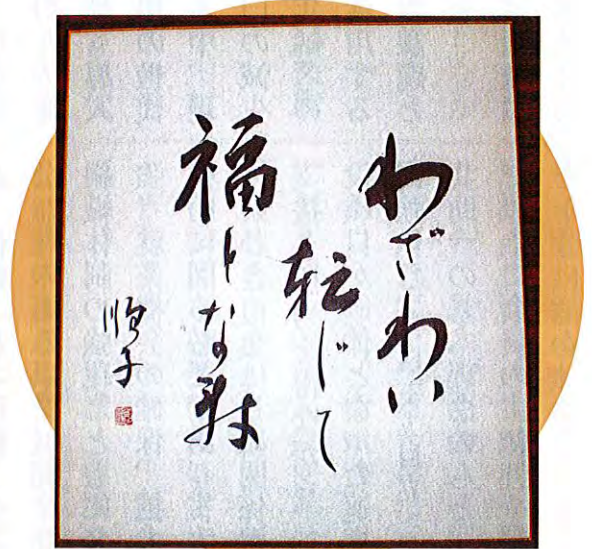 わざわい
転じて
福となす
順子